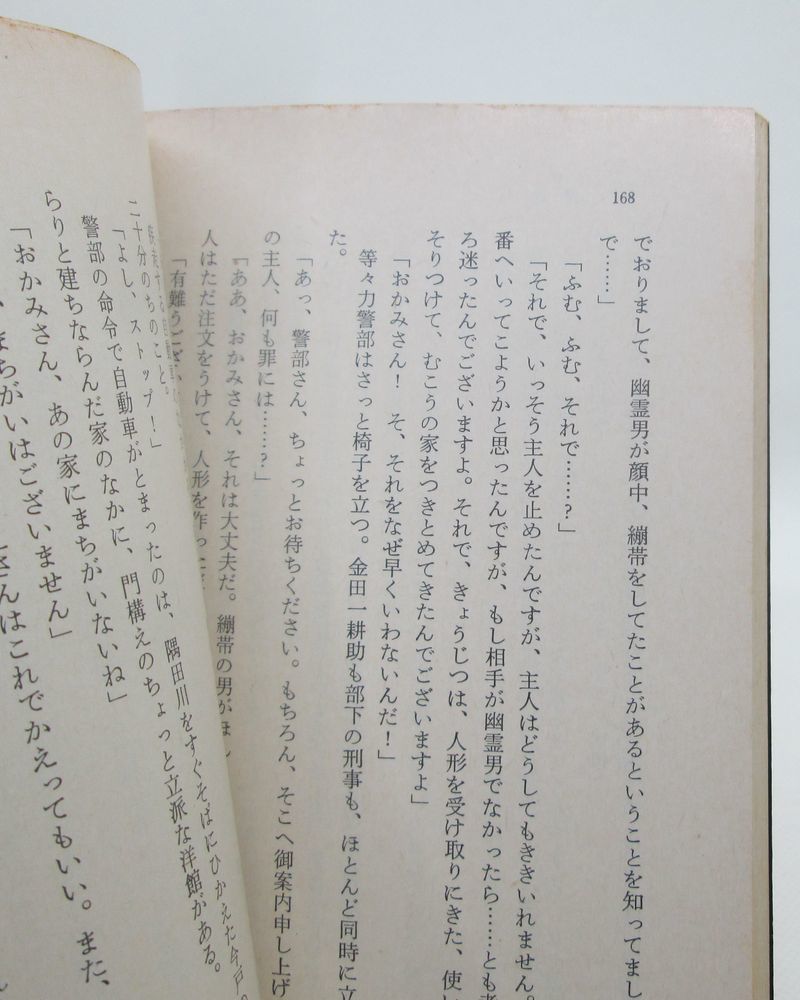 168
でおりまして、幽霊男が顔中、繃帯をしてたことがあるということを知ってまし
で……」
「ふむ、ふむ、それで……?」
「それで、いっそう主人を止めたんですが、主人はどうしてもききいれません。
番へいってこようかと思ったんですが、もし相手が幽霊男でなかったら……とも
ろ迷ったんでございますよ。それで、きょうじつは、人形を受け取りにきた、使い
そりつけて、むこうの家をつきとめてきたんでございますよ」
「おかみさん! そ、それをなぜ早くいわないんだ!」
等々力警部はさっと椅子を立つ。金田一耕助も部下の刑事も、ほとんど同時に立
た。
「あっ、警部さん、ちょっとお待ちください。もちろん、そこへ御案内申し上げ
の主人、何も罪には……?」
「ああ、おかみさん、それは大丈夫だ。繃帯の男がほ
人はただ注文をうけて、人形を作った
「有難うござ
二十分のちのこと。
「よし、ストップ!」
警部の命令で自動車がとまったのは、隅田川をすぐそばにひかえた今戸
らりと建ちならんだ家のなかに、門構えのちょっと立派な洋館がある。
「おかみさん、あの家にまちがいないね」
まちがいはございません」
さんはこれでかえってもいい。また、